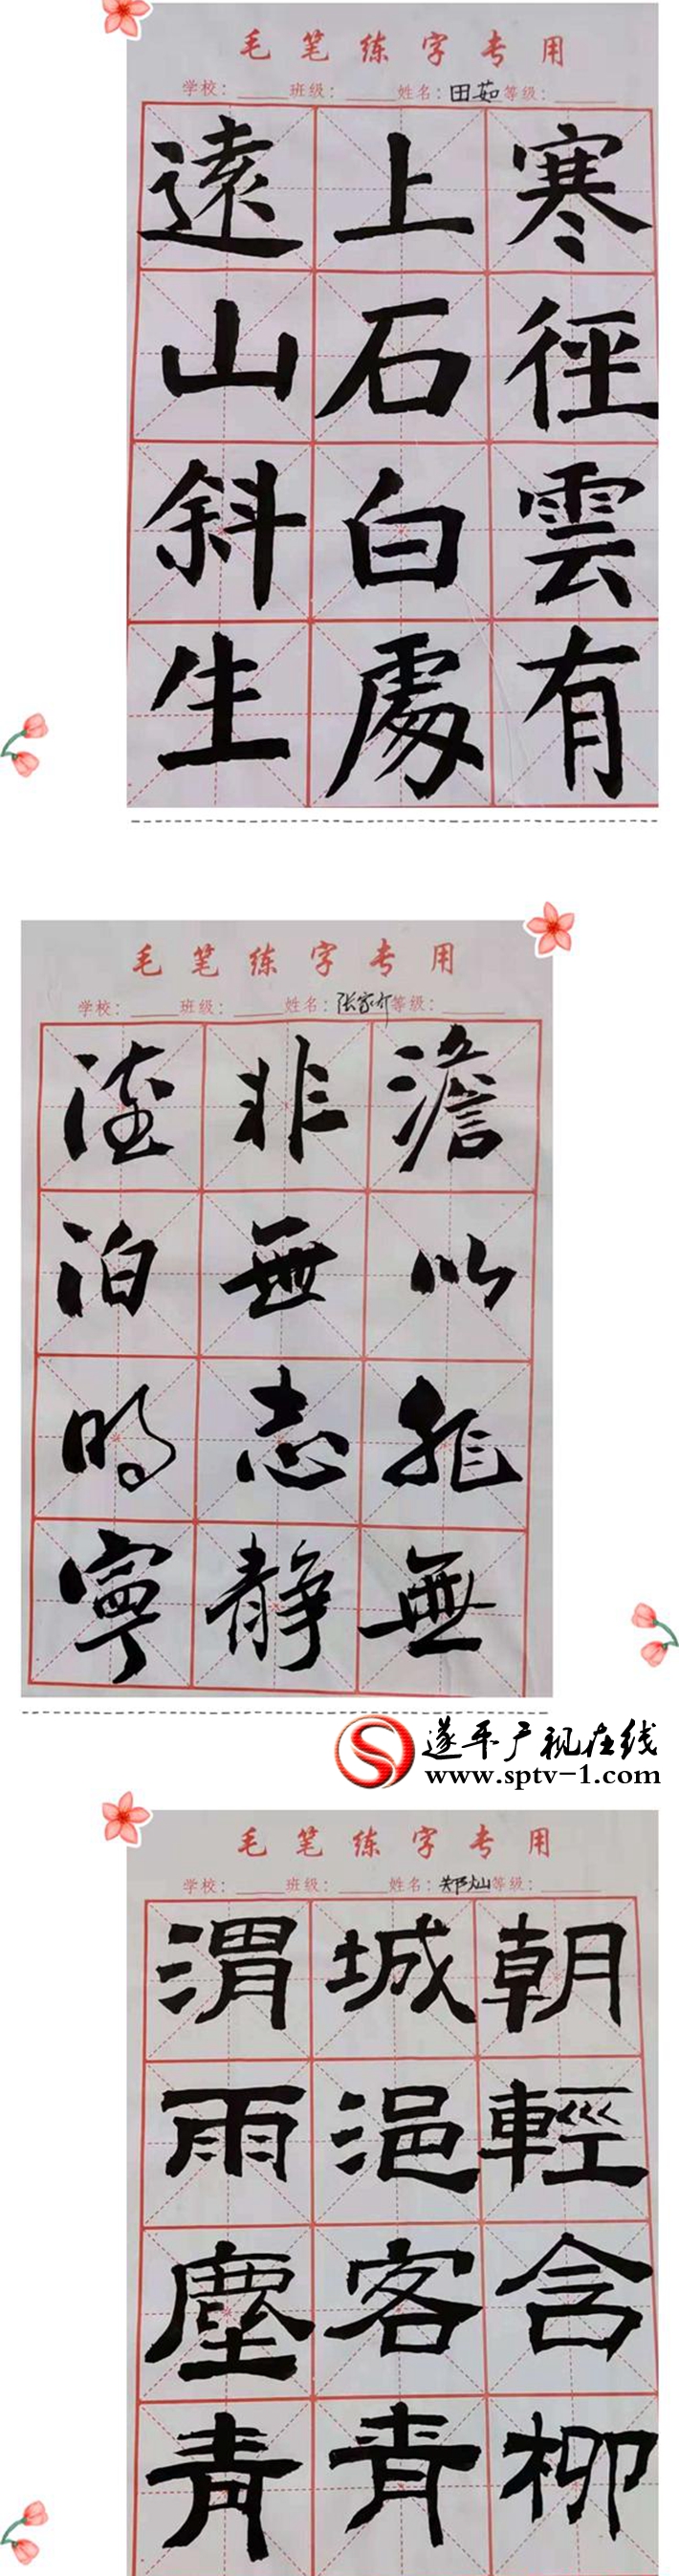 毛笔练字专用
学校：班级：姓名：田茹等级：
遠上寒
山石徑
斜白雲
生處有
毛笔练字专用
学校：班级：姓名：张家等级：
德非澹
泊無以
明志非
寧靜無
遂平广视在线
www.sptv-1.com
毛笔练字专用
学校：班级：姓名：郑灿等级：
渭城朝
雨浥輕
塵客舍
青青柳